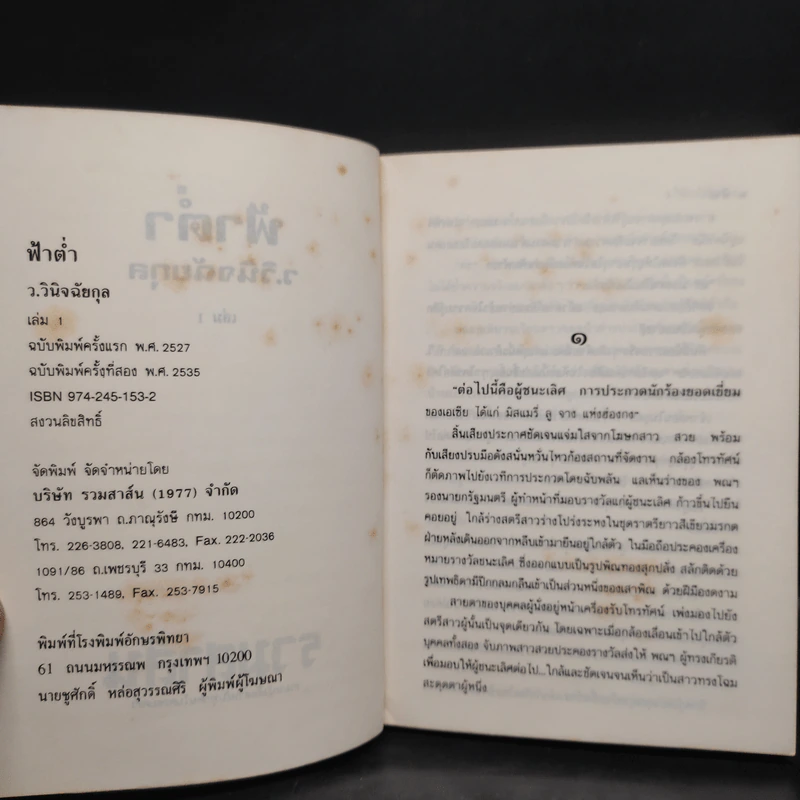 ฟ้าต่ำ
ว.วินิจฉัยกุล
เล่ม 1
ฉบับพิมพ์ครั้งแรก พ.ศ. 2527
ฉบับพิมพ์ครั้งที่สอง พ.ศ. 2535
ISBN 974-245-153-2
สงวนลิขสิทธิ์
จัดพิมพ์ จัดจำหน่ายโดย
บริษัท รวมสาส์น (1977) จำกัด
864 วังบูรพา ถ.ภาณุรังษี กทม. 10200
โทร. 226-3808, 221-6483, Fax. 222-2036
1091/86 ถ.เพชรบุรี 33 กทม. 10400
โทร. 253-1489, Fax. 253-7915
พิมพ์ที่โรงพิมพ์อักษรพิทยา
61 ถนนมหรรณพ กรุงเทพฯ 10200
นายชูศักดิ์ หล่อสุวรรณศิริ ผู้พิมพ์ผู้โฆษณา
๑
"ต่อไปนี้คือผู้ชนะเลิศ การประกวดนักร้องยอดเยี่ยม
ของเอเซีย ได้แก่ มิสแมรี่ ลู จาง แห่งฮ่องกง"
สิ้นเสียงประกาศชัดเจนแจ่มใสจากโฆษกสาว สวย พร้อม
กับเสียงปรบมือดังสนั่นหวั่นไหวก้องสถานที่จัดงาน กล้องโทรทัศน์
ก็ตัดภาพไปยังเวทีการประกวดโดยฉับพลัน แลเห็นร่างของ พณฯ
รองนายกรัฐมนตรี ผู้ทำหน้าที่มอบรางวัลแก่ผู้ชนะเลิศ ก้าวขึ้นไปยืน
คอยอยู่ ใกล้ร่างสตรีสาวร่างโปร่งระหงในชุดราตรียาวสีเขียวมรกต
ฝ่ายหลังเดินออกจากหลืบเข้ามายืนอยู่ใกล้ตัว ในมือถือประคองเครื่อง
หมายรางวัลชนะเลิศ ซึ่งออกแบบเป็นรูปพิณทองสุกปลั่ง สลักติดด้วย
รูปเทพธิดามีปีกกลมกลืนเข้าเป็นส่วนหนึ่งของเสาพิณ ด้วยฝีมืองดงาม
สายตาของบุคคลผู้นั่งอยู่หน้าเครื่องรับโทรทัศน์ เพ่งมองไปยัง
สตรีสาวผู้นั้นเป็นจุดเดียวกัน โดยเฉพาะเมื่อกล้องเลื่อนเข้าไปใกล้ตัว
บุคคลทั้งสอง จับภาพสาวสวยประคองรางวัลส่งให้ พณฯ ผู้ทรงเกียรติ
เพื่อมอบให้ผู้ชนะเลิศต่อไป...ใกล้และชัดเจนจนเห็นว่าเป็นสาวทรงโฉม
สะดุดตาผู้หนึ่ง